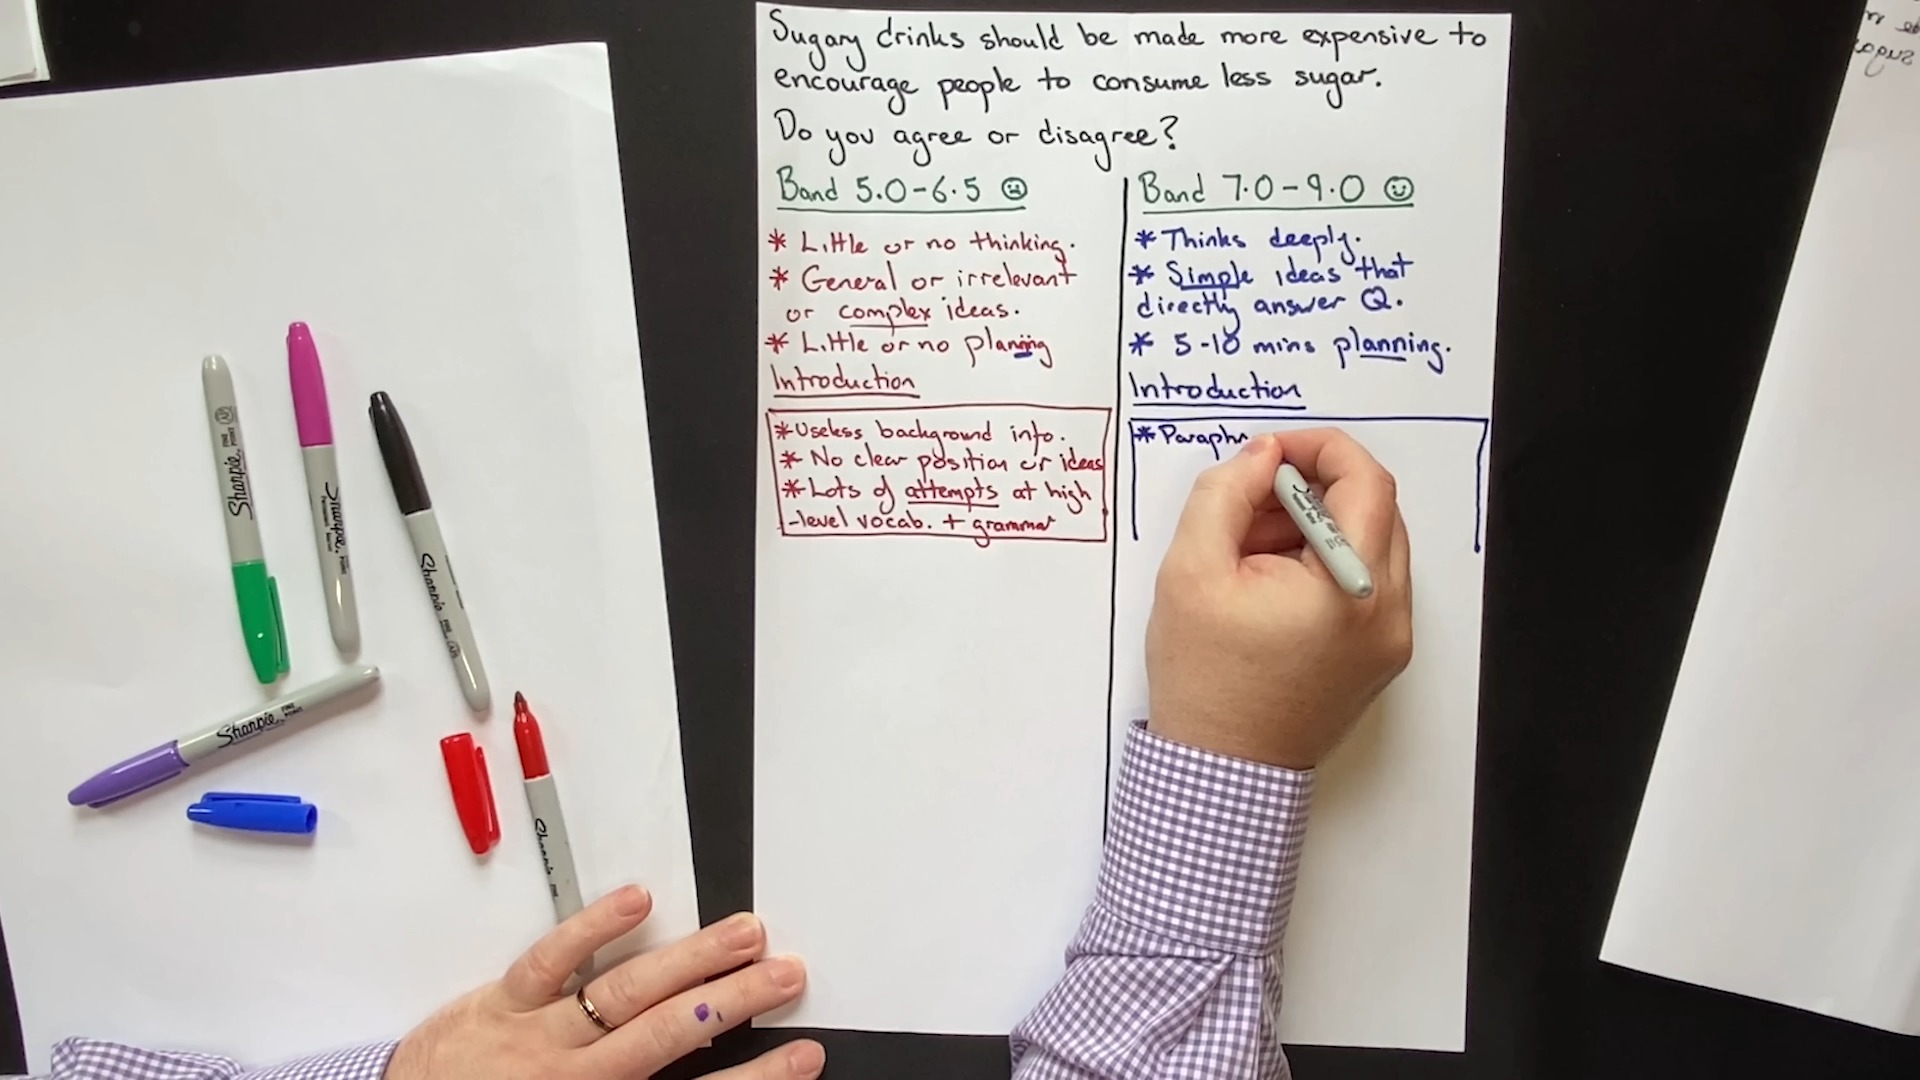 Sugary drinks should be made more expensive to
encourage people to consume less sugar.
Do you agree or disagree?
Band 5.0-6.5
* Little or no thinking.
* General or irrelevant
or complex ideas.
* Little or no planning
Introduction
* Useless background info.
* No clear position or ideas
* Lots of attempts at high
-level vocab. + grammar
Band 7.0-9.0
* Thinks deeply.
* Simple ideas that
directly answer Q.
* 5-10 mins planning.
Introduction
* Paraphr
Sharpie FINE POINT
Sharpie
Sharpie
Sharpie FINE POINT
Sharpie